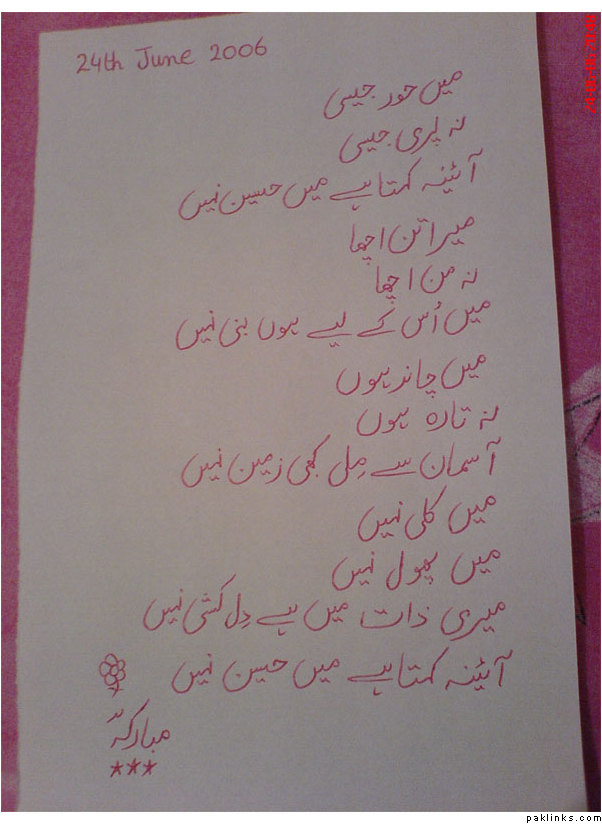 24th June 2006
میں حور جیسی
نہ پری جیسی
آئینہ کہتا ہے میں حسین نہیں
میرا تن اچھا
نہ من اچھا
میں اُس کے لیے ہوں بنی نہیں
میں چاند ہوں
نہ تارہ ہوں
آسمان سے مِلی کبھی زمین نہیں
میں کلی نہیں
میں پھول نہیں
میری ذات میں ہے دِل کشی نہیں
آئینہ کہتا ہے میں حسین نہیں
مبارکہ
***
paklinks.com